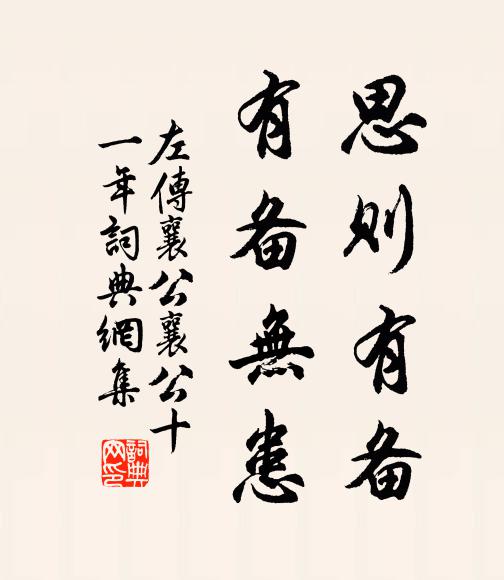 思则有备
有备無患
左傳襄公襄公十
一年詞典網集
詞典网印